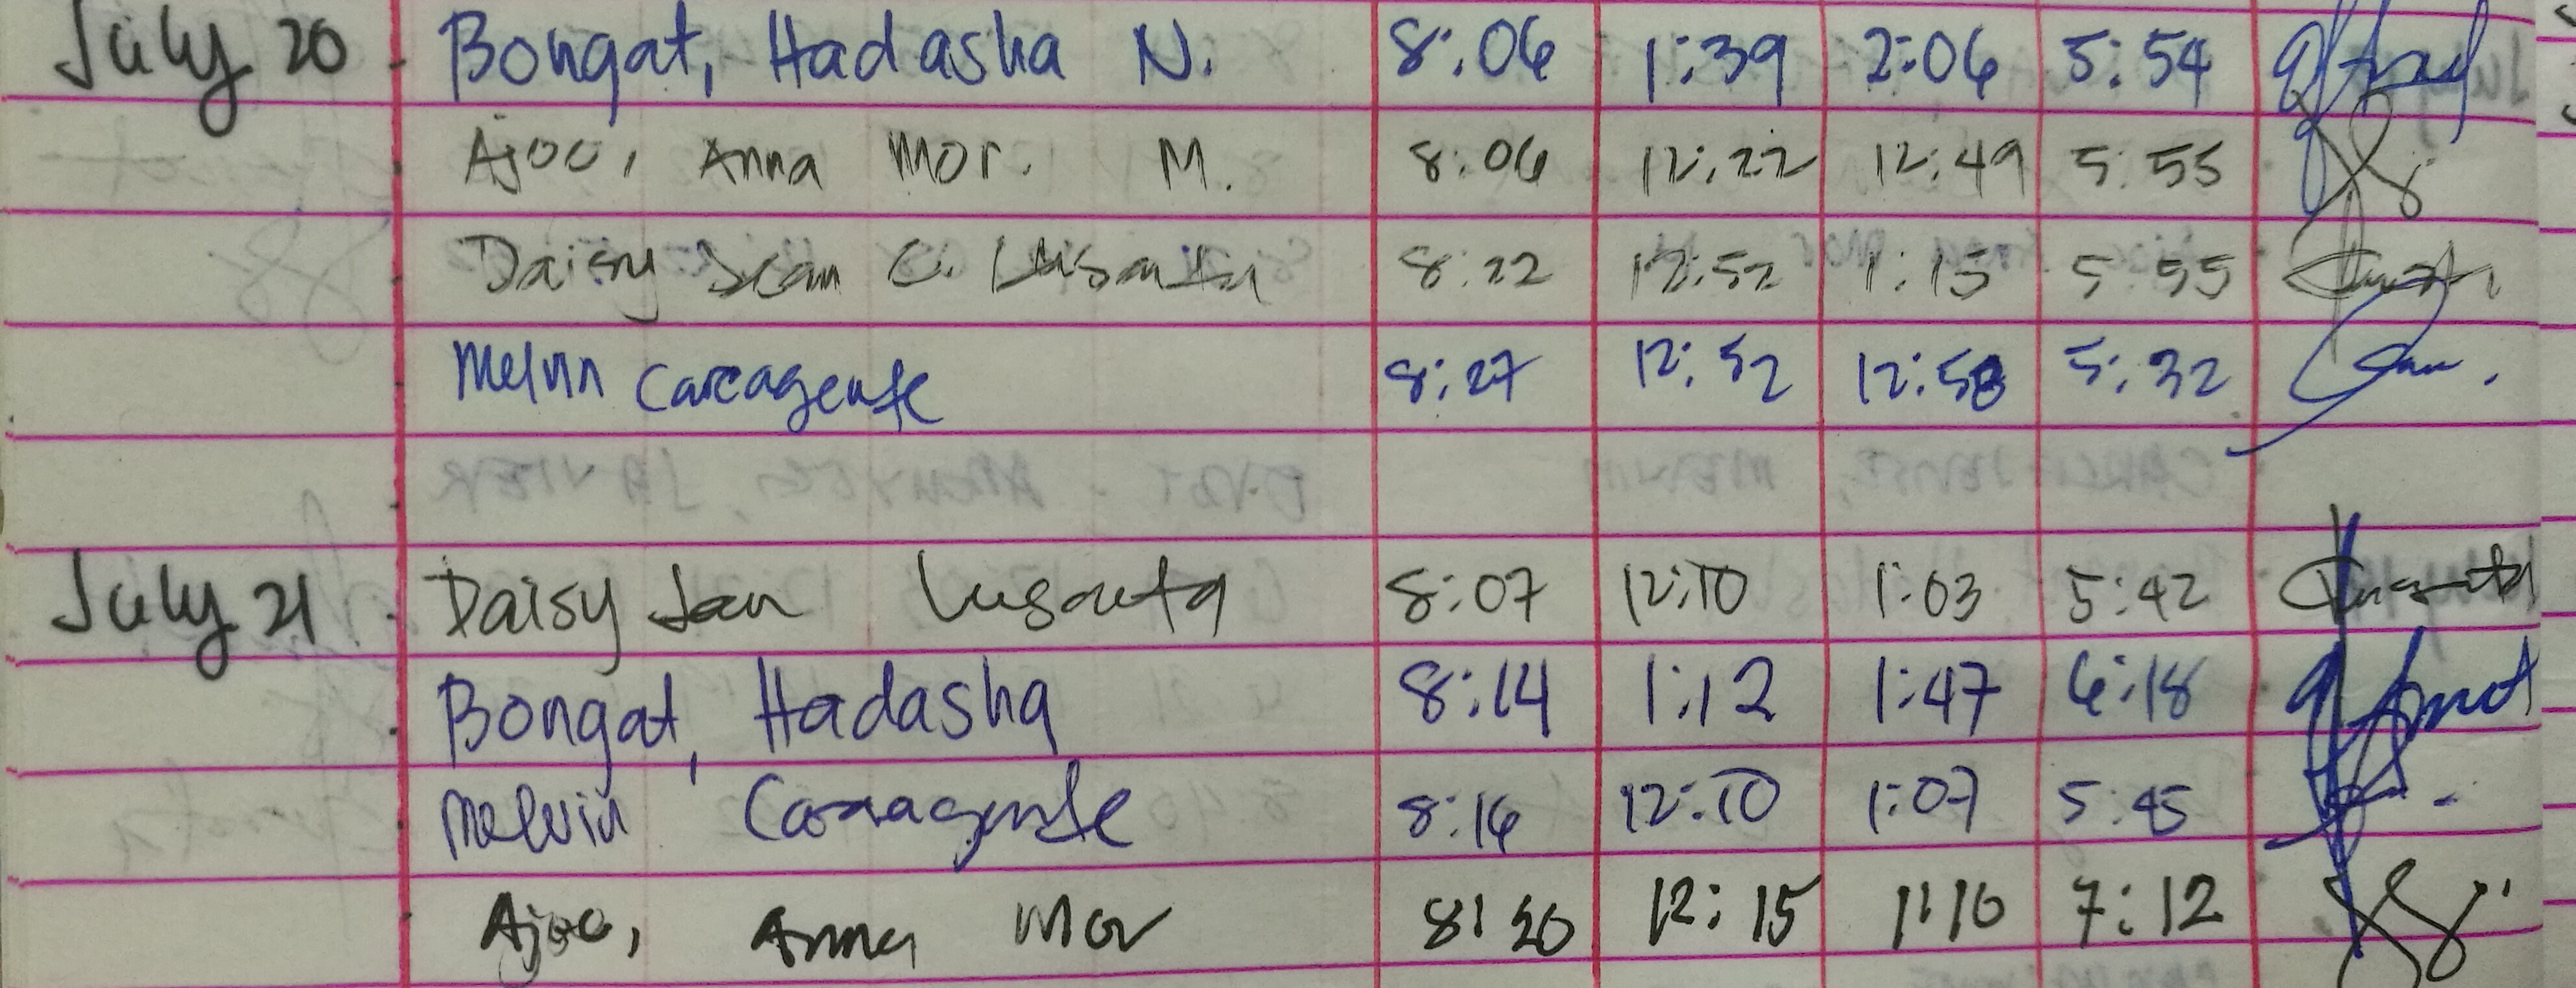 July 20 Bongat, Hadasha N. 8:06 1:39 2:06 5:54
Ajoc, Anna Mor. M. 8:06 12:22 12:49 5:55
Daisy Jean C. Lusanta 8:22 12:52 1:15 5:55
Melvin Carcagente 8:27 12:52 12:58 5:32
July 21 Daisy Jean Lusanta 8:07 12:10 1:03 5:42
Bongat, Hadasha 8:14 1:12 1:47 6:18
Melvin Carcagente 8:16 12:10 1:07 5:45
Ajoc, Anna Mor 8:20 12:15 1:10 7:12